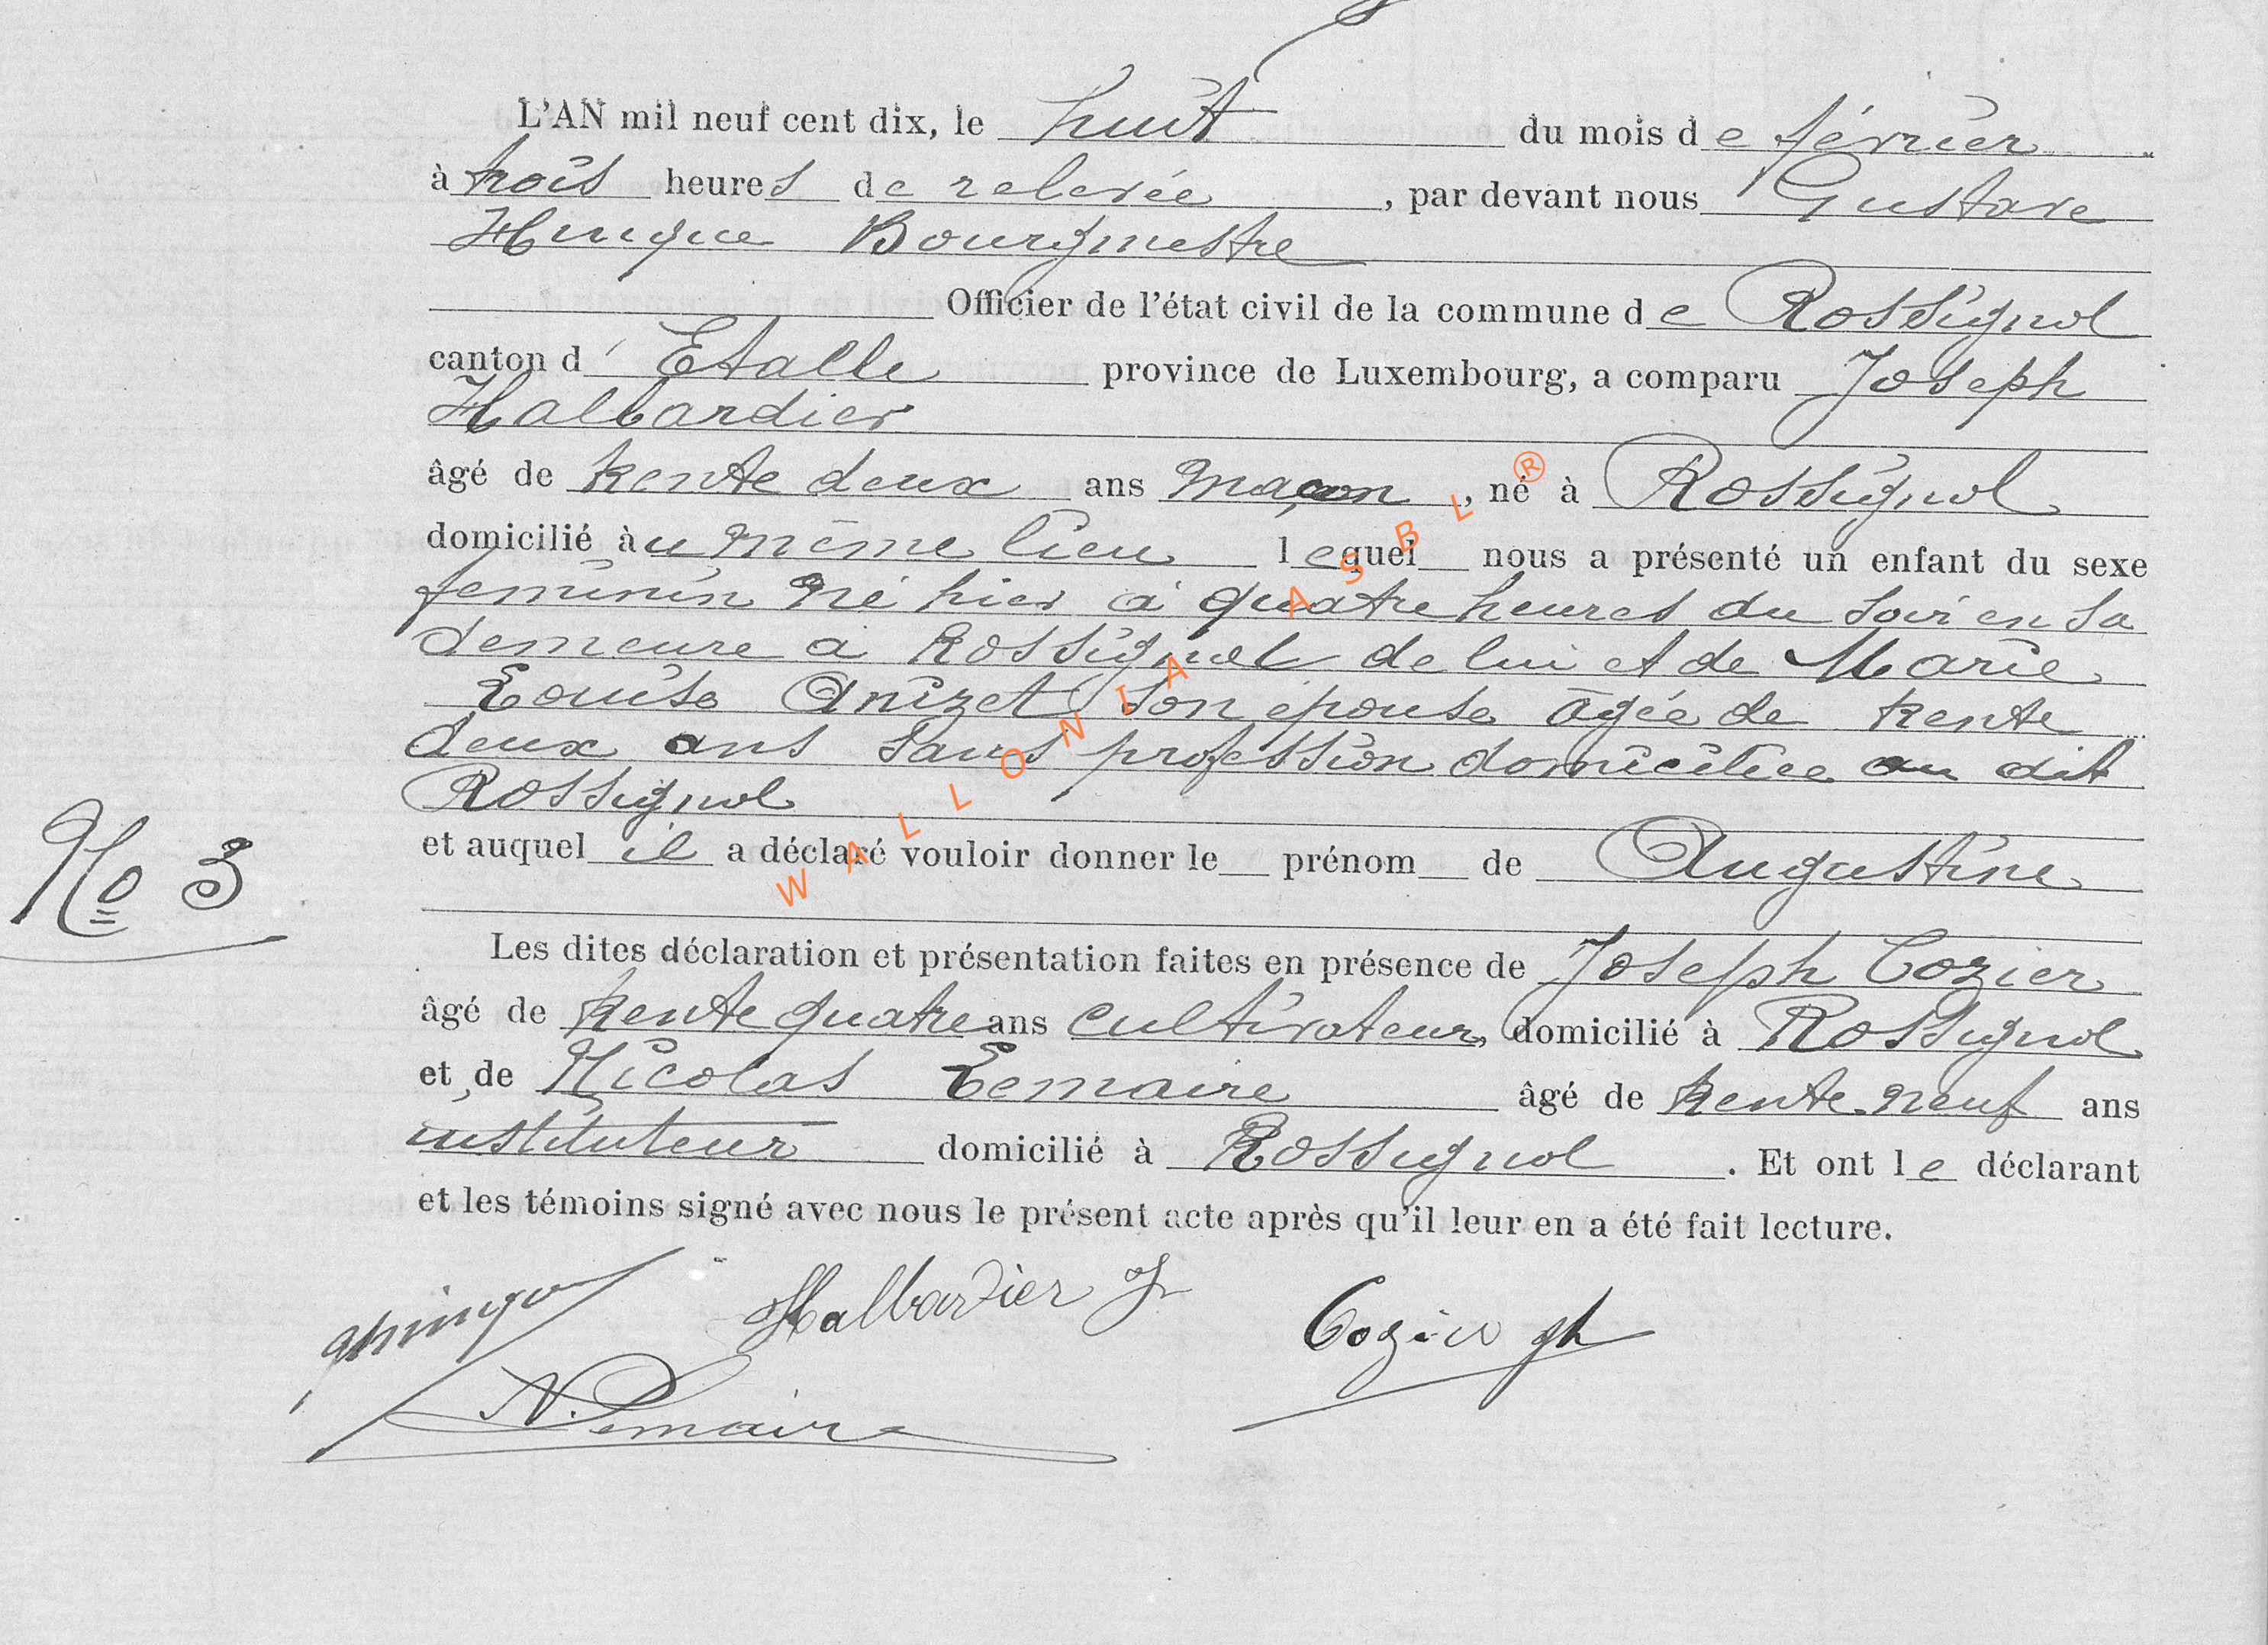 L'AN mil neuf cent dix, le huit du mois de février
à trois heures de relevée, par devant nous Gustave
Hinque Bourgmestre
Officier de l'état civil de la commune de Rossignol
canton d'Etalle province de Luxembourg, a comparu Joseph
Halbardier
âgé de trente deux ans maçon, né à Rossignol
domicilié àu même lieu lequel nous a présenté un enfant du sexe
feminin né hier à quatre heures du soir en sa
demeure a Rossignol de lui et de Marie
Louise Anizet son epouse âgée de trente
deux ans sans profession domiciliée au dit
Rossignol
No 3
et auquel il a déclaré vouloir donner le prénom de Augustine
Les dites déclaration et présentation faites en présence de Joseph Cozier
âgé de trente quatre ans cultivateur, domicilié à Rossignol
et de Nicolas Lemaire âgé de trente neuf ans
instituteur domicilié à Rossignol. Et ont le déclarant
et les témoins signé avec nous le présent acte après qu'il leur en a été fait lecture.
Halbardier J
Cozier Jh
N. Lemaire
WALLONIA ASBL ®